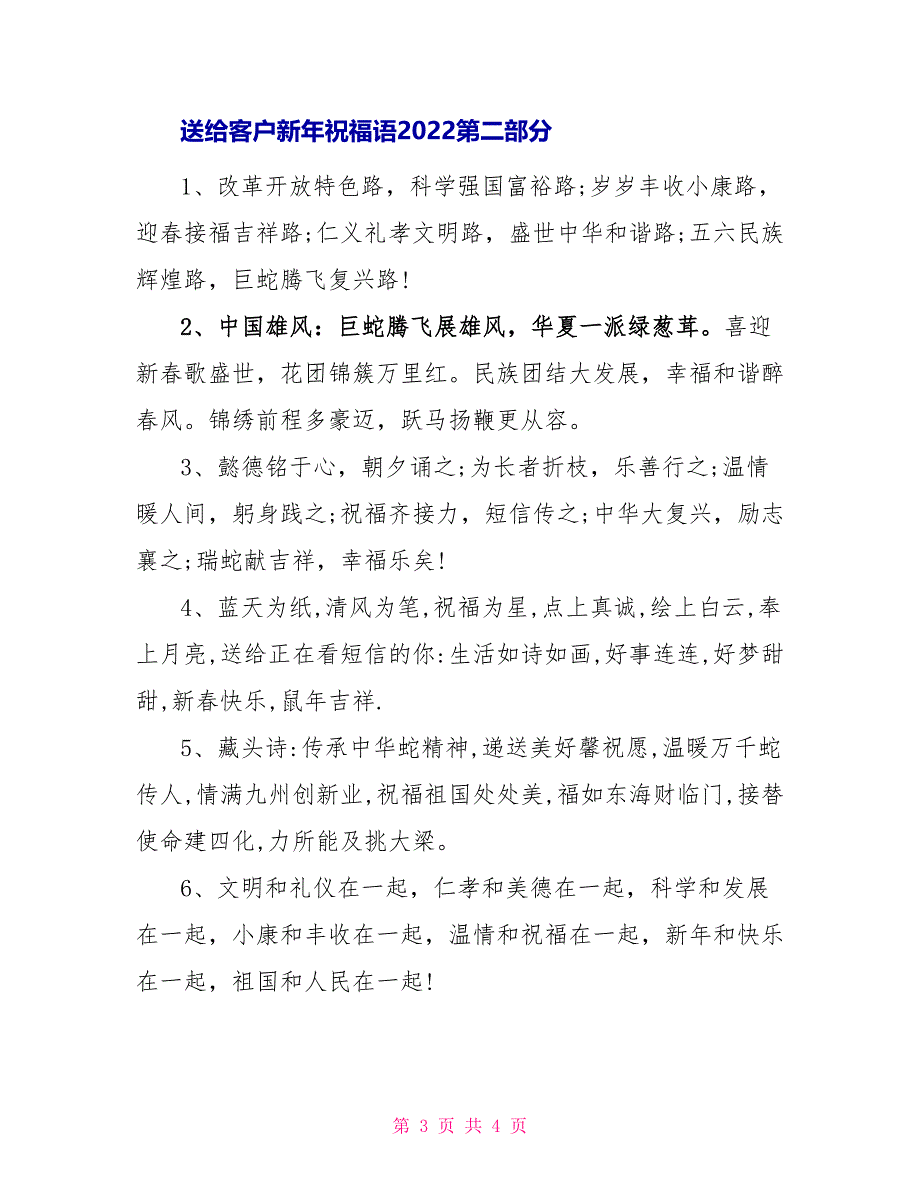 送给客户新年祝福语2022第二部分
1、改革开放特色路，科学强国富裕路;岁岁丰收小康路，
迎春接福吉祥路;仁义礼孝文明路，盛世中华和谐路;五六民族
辉煌路，巨蛇腾飞复兴路!
2、中国雄风：巨蛇腾飞展雄风，华夏一派绿葱茸。喜迎
新春歌盛世，花团锦簇万里红。民族团结大发展，幸福和谐醉
春风。锦绣前程多豪迈，跃马扬鞭更从容。
3、懿德铭于心，朝夕诵之;为长者折枝，乐善行之;温情
暖人间，躬身践之;祝福齐接力，短信传之;中华大复兴，励志
襄之;瑞蛇献吉祥，幸福乐矣!
4、蓝天为纸,清风为笔,祝福为星,点上真诚,绘上白云,奉
上月亮,送给正在看短信的你:生活如诗如画,好事连连,好梦甜
甜,新春快乐,鼠年吉祥.
5、藏头诗:传承中华蛇精神,递送美好馨祝愿,温暖万千蛇
传人,情满九州创新业,祝福祖国处处美,福如东海财临门,接替
使命建四化,力所能及挑大梁。
6、文明和礼仪在一起，仁孝和美德在一起，科学和发展
在一起，小康和丰收在一起，温情和祝福在一起，新年和快乐
在一起，祖国和人民在一起!
第 3 页 共 4 页